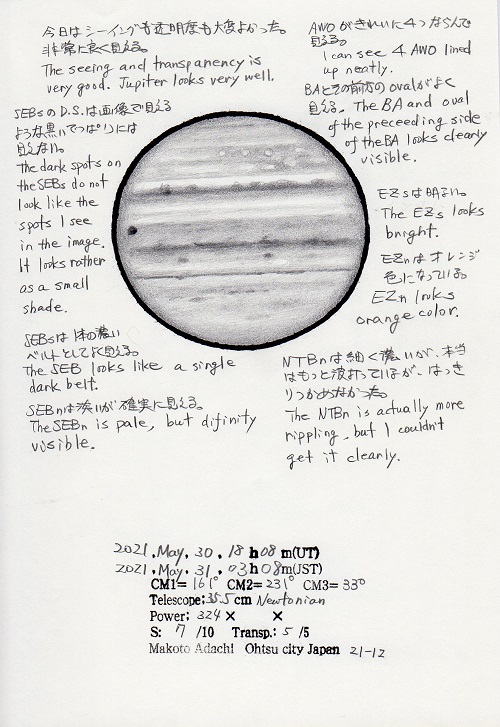 今日はシーイングも透明度も大変よかった。
非常に良く見える。
The seeing and transparency is
very good. Jupiter looks very well.
SEBsのD.S.は画像で見える
ような黒いでっぱりには
見えない。
The dark spots on
the SEBs do not
look like the
spots I see
in the image.
It looks rather
as a small
shade.
SEBsは1本の濃い
ベルトとしてよく見える。
The SEB looks like a single
dark belt.
SEBnは淡いが確実に見える。
The SEBn is pale, but difinity
visible.
AWOがきれいに4つならんで
見える。
I can see 4 AWO lined
up neatly.
BAとその前方のovalがよく
見える。The BA and oval
of the preceeding side
of the BA looks clearly
visible.
EZsは明るい。
The EZs looks
bright.
EZnはオレンジ
色になっている。
EZn looks
orange color.
NTBnは細く濃いが、本当
はもっと波打っているが、はっき
りつかめなかった。
The NTBn is actually more
rippling, but I couldn't
get it clearly.
2021, May, 30, 18 h 08 m(UT)
2021, May, 31, 03 h 08 m(JST)
CM1= 161° CM2= 231° CM3= 33°
Telescope; 35.5 cm Newtonian
Power; 324 ×    ×
S: 7 /10 Transp.: 5 /5
Makoto Adachi Ohtsu city Japan 21-12